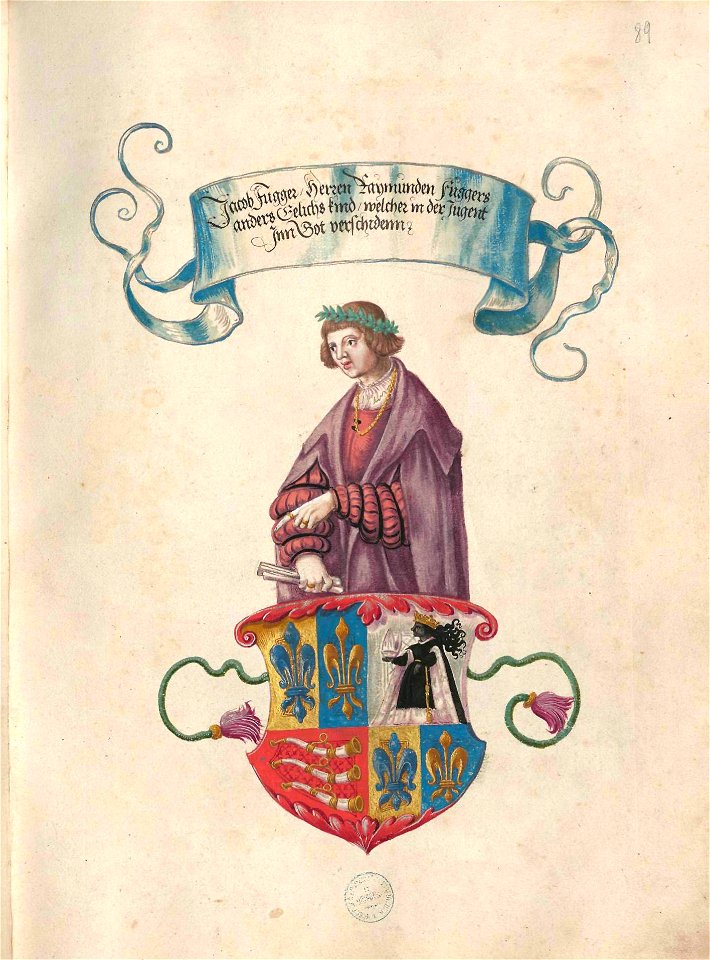 89
Jacob Fugger, Herren Raymunden Fuggers
anders Eelichs kind, welcher in der Jugent
Inn Got verschidenn.